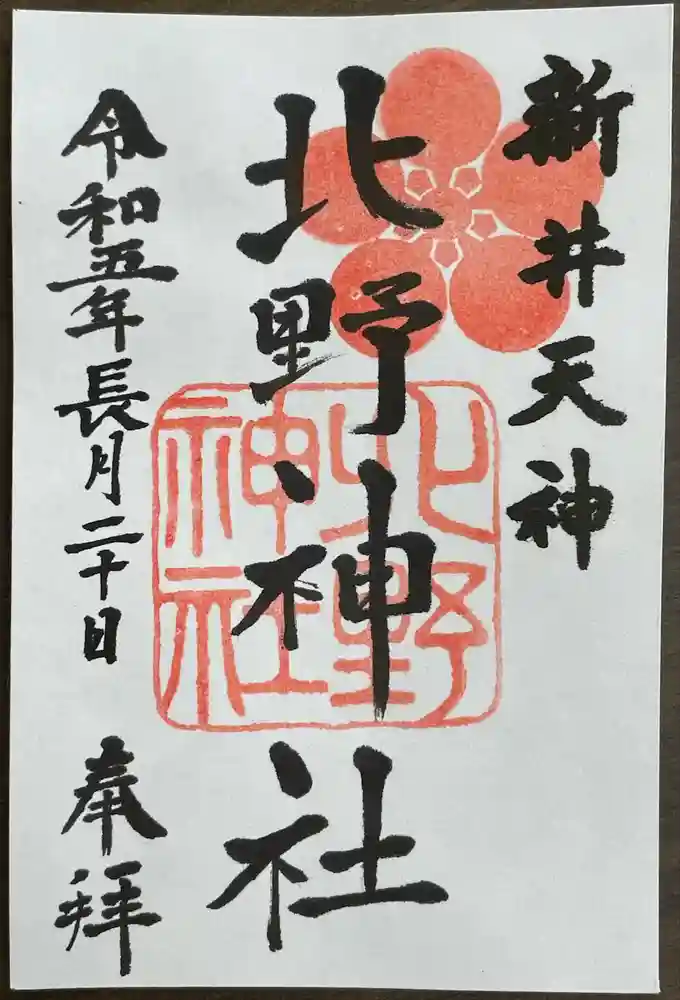 新井天神
北野神社
北野神社
令和五年長月二十日
奉拝